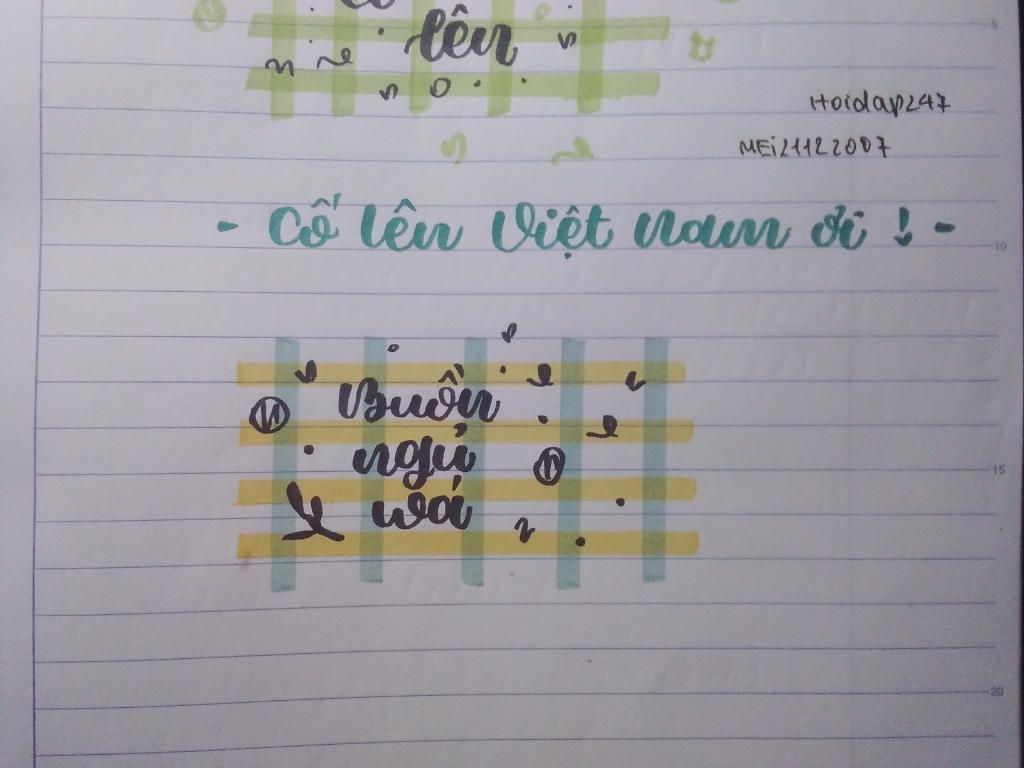 lên
Hoidap247
MEi21122007
- Cố lên Việt Nam ơi ! -
Buồn
ngủ
wá
5
10
15
20